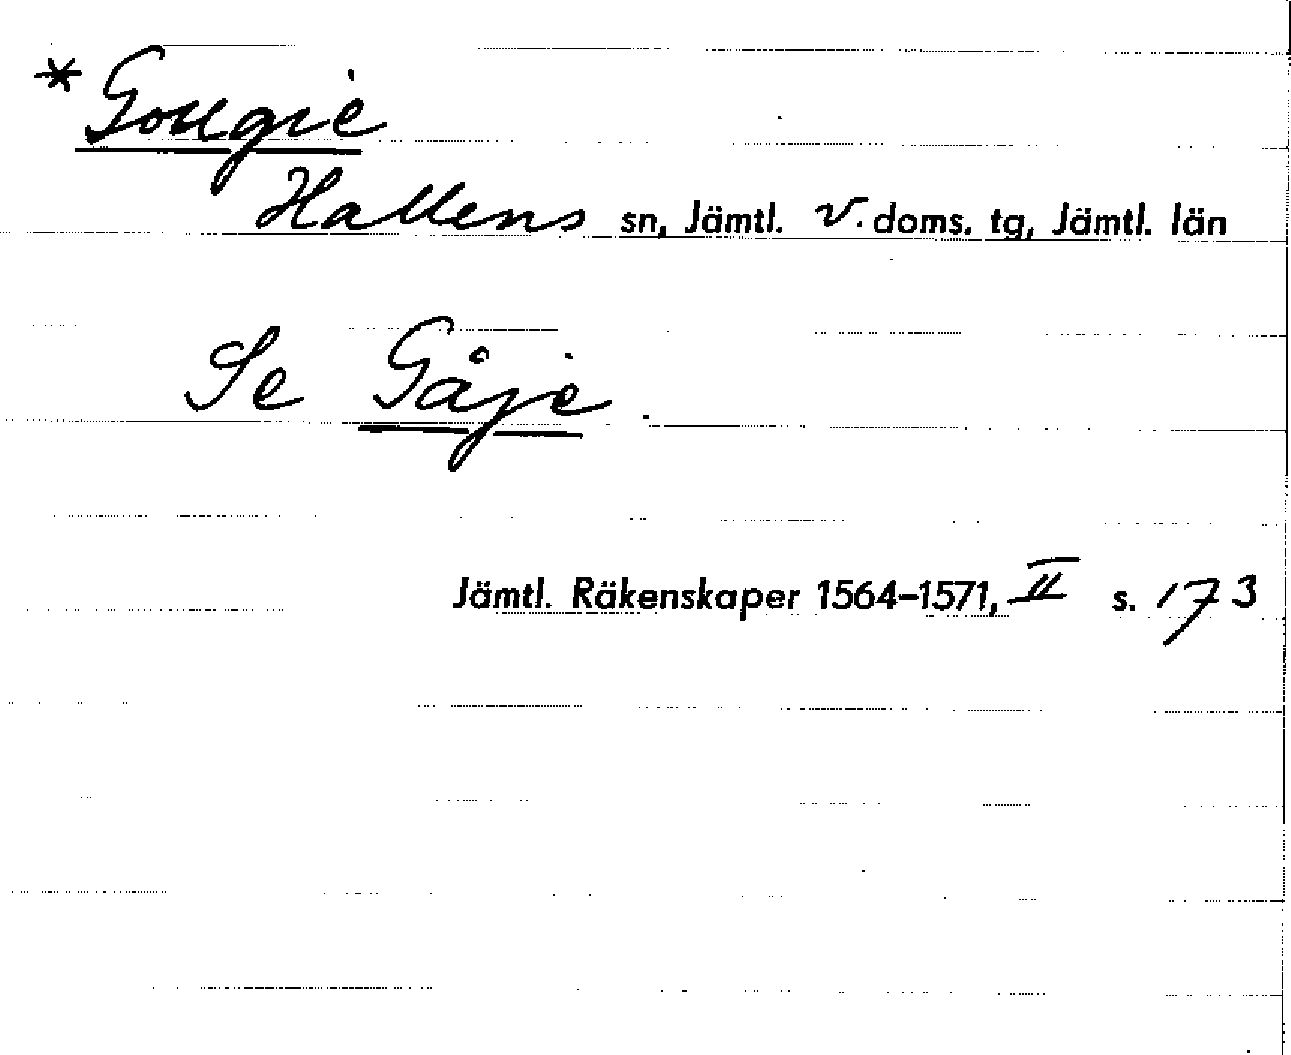 * Gougie
Hallens sn, Jämtl. v. doms. tg, Jämtl. län
Se Gåje.
Jämtl. Räkenskaper 1564–1571, II s. 173